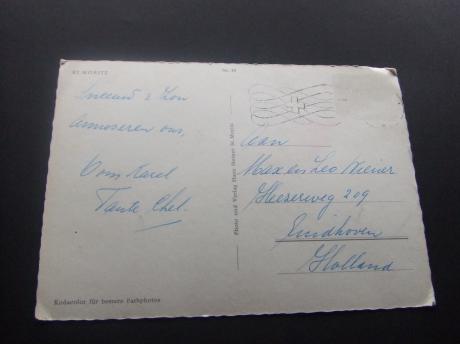 ST. MORITZ
No. 39
Sneeuw & Zon
Amuseren ons,
Oom Karel
Tante Chel.
Photo und Verlag Hans Steiner St. Moritz
Aan
Max en Leo Wiener
Heezerweg 209
Eindhoven
Holland
Kodacolor für bessere Farbphotos